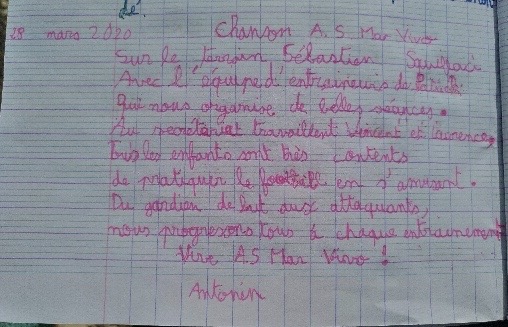 de.
28 mars 2020 Chanson A.S. Mar Vivo
Sur le terrain Sébastien Squillaci
Avec l'équipe d'entraineurs de Patrick
qui nous organise de belles séances.
Au secrétariat travaillent Vincent et Laurence,
Tous les enfants sont très contents
de pratiquer le football en s'amusant.
Du gardien de but aux attaquants,
nous progressons tous à chaque entrainement
Vive AS Mar Vivo !
Antonin